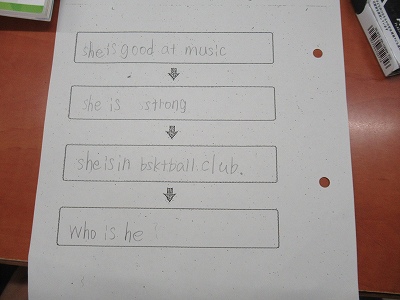 she is good at music
she is strong
she is in bsktball club.
who is he